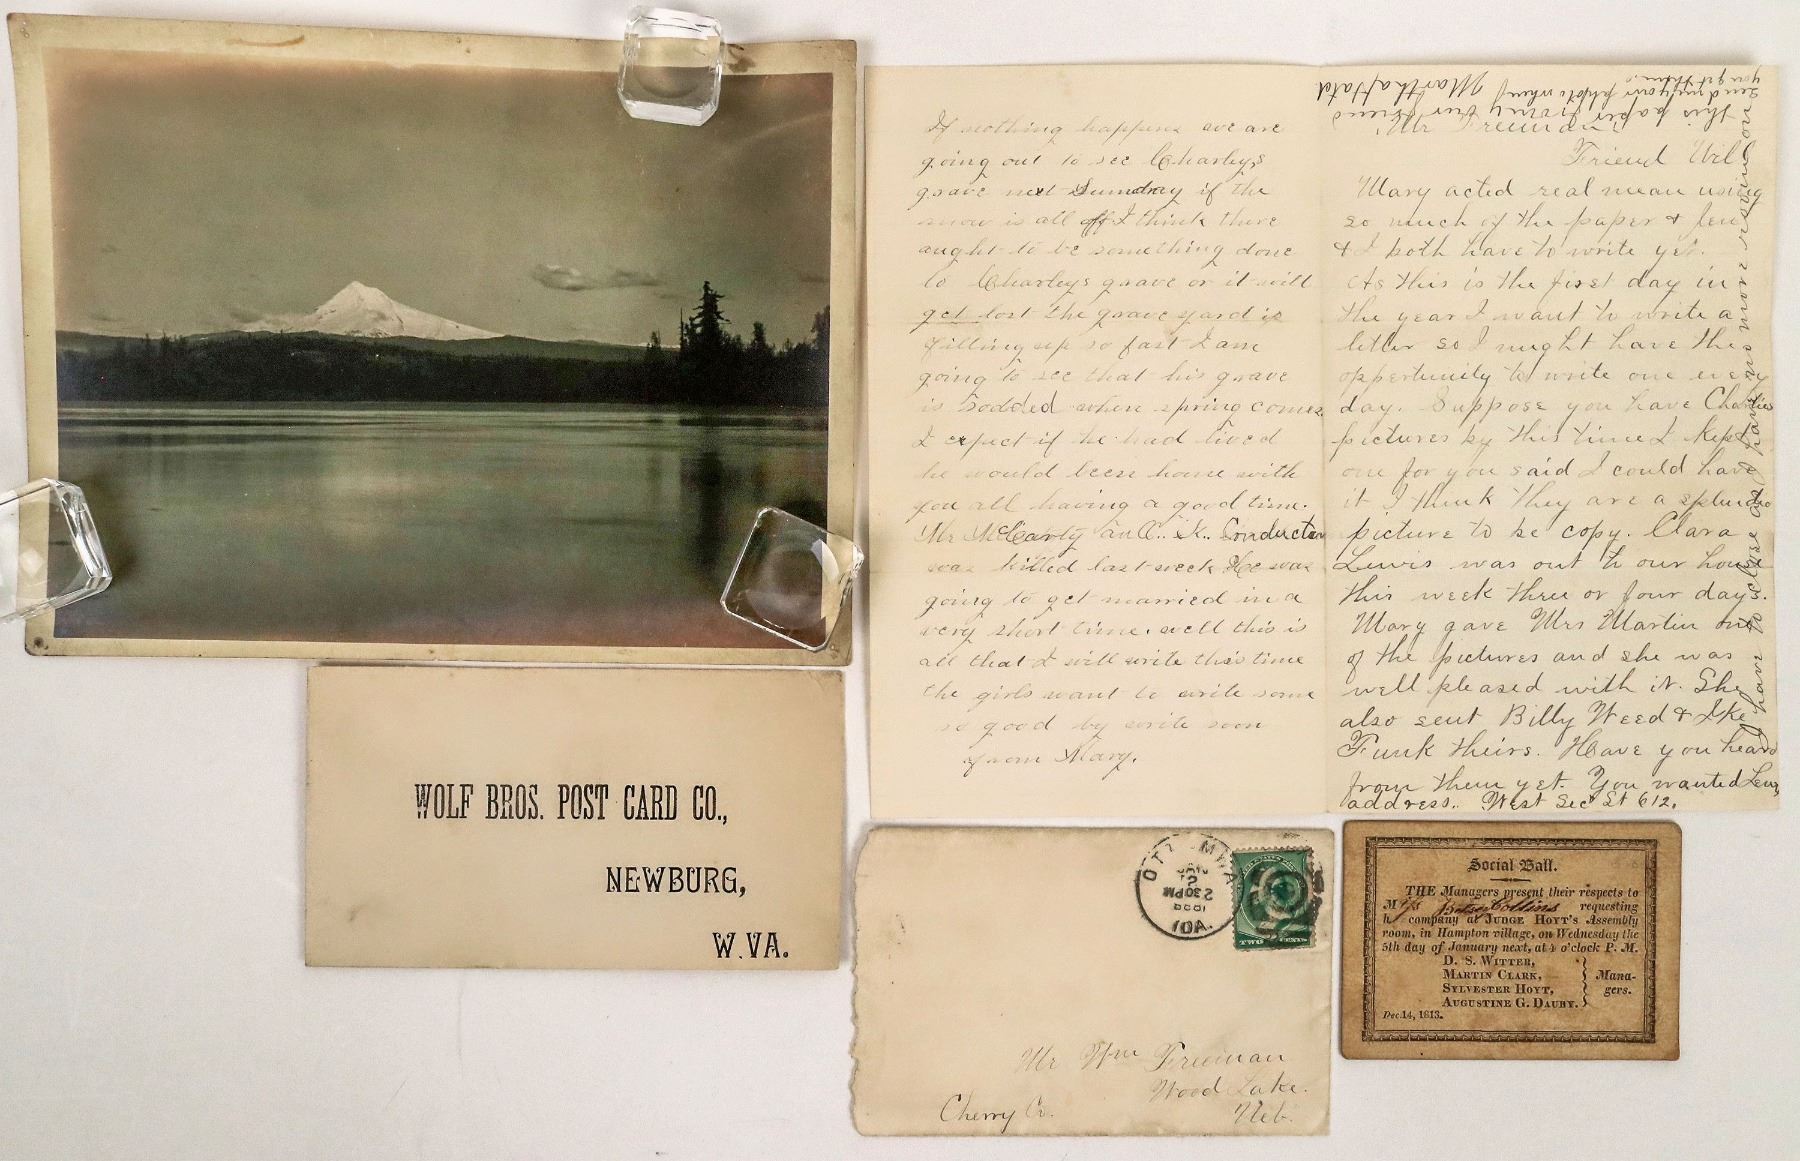 If nothing happens we are
going out to see Charleys
grave next Sunday if the
snow is all off I think there
aught to be something done
to Charleys grave or it will
get lost the grave yard is
filling up so fast I am
going to see that his grave
is sodded when spring comes
I expect if he had lived
he would been home with
you all having a good time.
Mr McCarty an C.. K.. Conductor
was killed last week He was
going to get married in a
very short time. well this is
all that I will write this time
the girls want to write some
so good by write soon
from Mary.
send my your photo when
you get them.
this paper
Your friend
Martha
Mr Freeman
Friend Will
Mary acted real mean using
so much of the paper & Jen
& I both have to write yet.
As this is the first day in
the year I want to write a
letter so I might have the
oppertunity to write one every
day. Suppose you have Charlies
pictures by this time I kept
one for you said I could have
it I think they are a splendid
picture to be copy. Clara
Lewis was out to our house
this week three or four days.
Mary gave Mrs Martin one
of the pictures and she was
well pleased with it. She
also sent Billy Weed & Ike
Funk theirs. Have you heard
from them yet. You wanted Lens
address.. West Sec St 612.
I have to close as I have no more room on
WOLF BROS. POST CARD CO.,
NEWBURG,
W. VA.
OTTUMWA
2 30PM
IOA.
TWO CENTS
Mr Wm Freeman
Wood Lake.
Cherry Co. Neb.
Social Ball.
THE Managers present their respects to
M Betsy Collins requesting
h company at JUDGE HOYT'S Assembly
room, in Hampton village, on Wednesday the
5th day of January next, at 4 o'clock P. M.
D. S. WITTER,
MARTIN CLARK,
SYLVESTER HOYT,
AUGUSTINE G. DAUBY.
Mana-
gers.
Dec. 14, 1813.